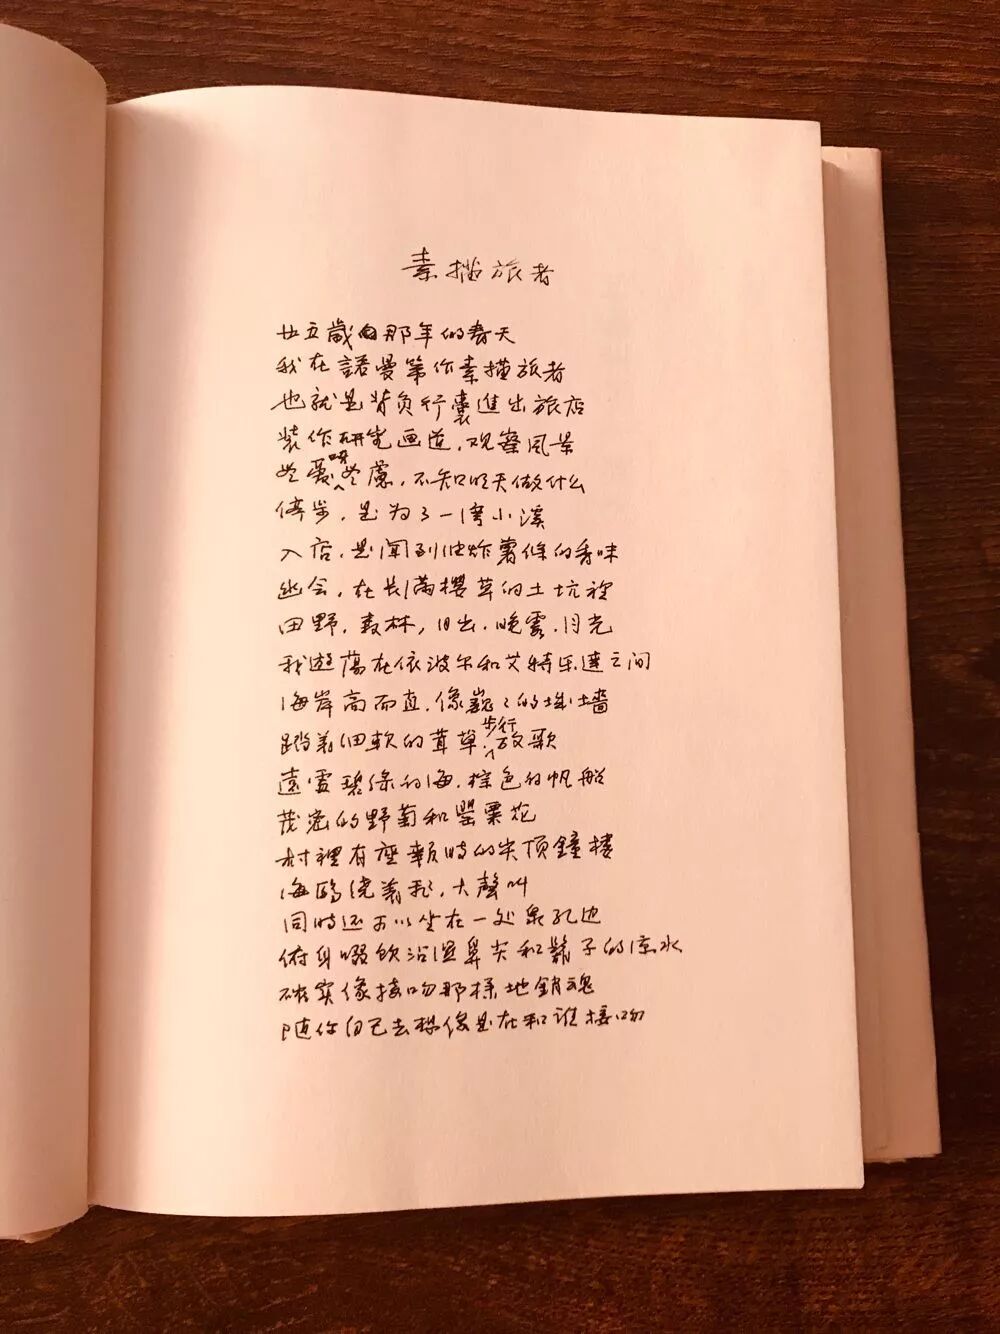 素描旅者
廿五歲的那年的春天
我在諾曼第作素描旅者
也就是背负行囊進出旅店
装作研究画道，观察風景
无爱呀无慮，不知明天做什么
停步，是为了一湾小溪
入店，是聞到油炸薯條的香味
幽会，在长滿櫻草的土坑裡
田野，森林，日出，晚霧，月光
我遊蕩在依波尔和艾特乐達之间
海岸高而直，像巍巍的城墙
踏着细軟的茸草，步行放歌
遠處碧綠的海，棕色的帆船
茂密的野菊和罌粟花
村裡有座報時的尖顶鐘樓
海鷗绕着飛，大聲叫
同時还可以坐在一处泉孔边
俯身啜飲沾湿鼻尖和鬍子的凉水
確实像接吻那样地銷魂
随你自己去想像是在和谁接吻